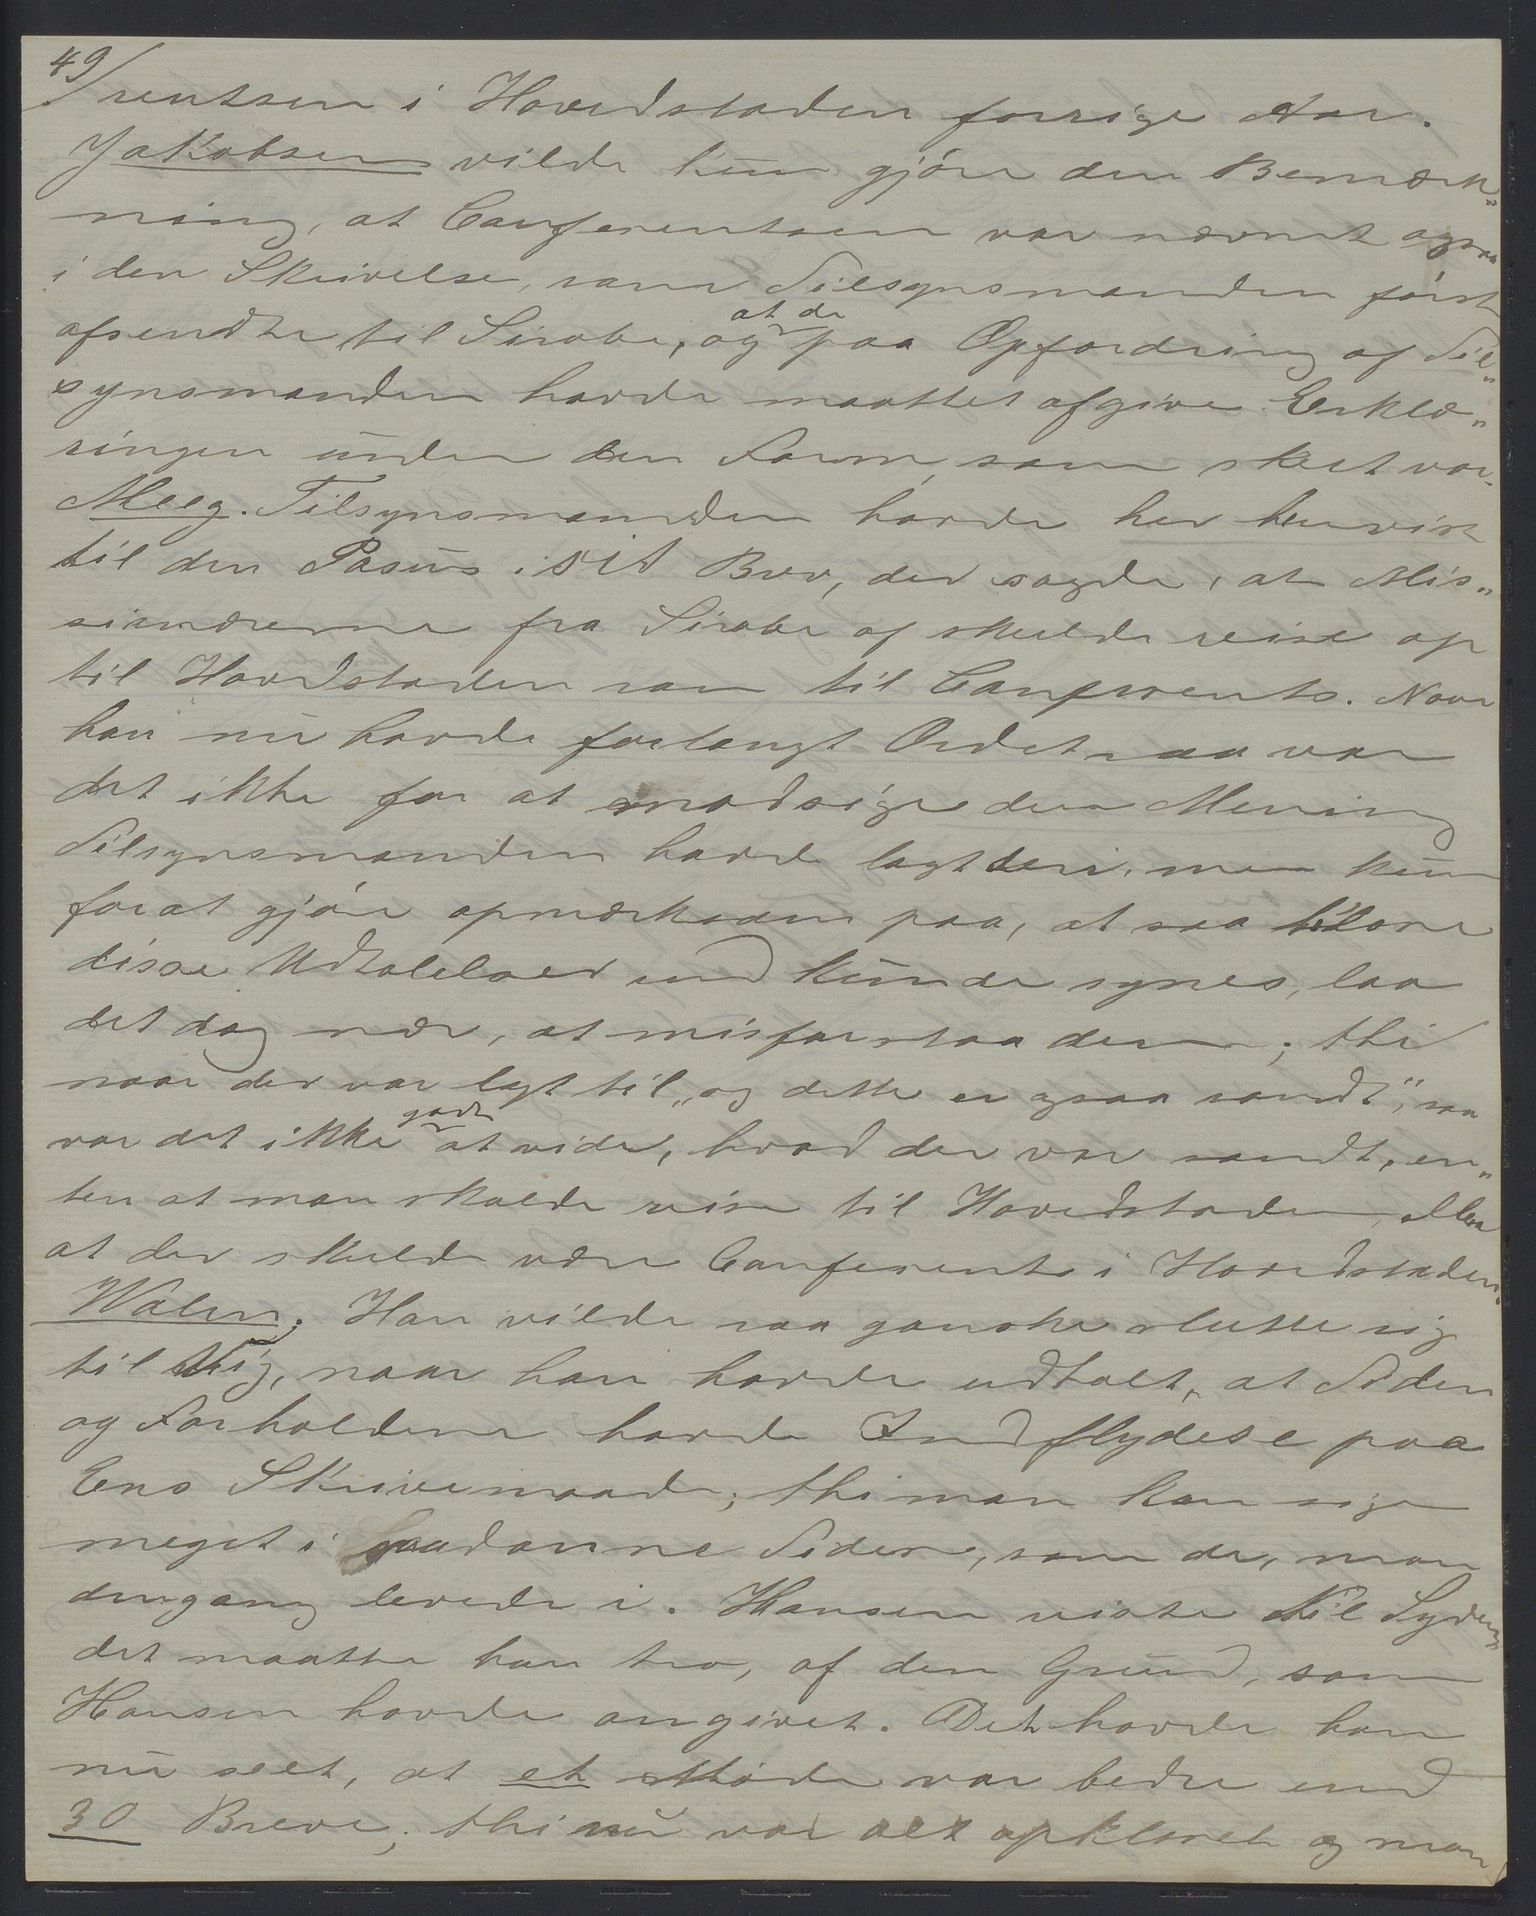 49/
rentsen i Hovedstaden forrige Aar.
Jakobsen vilde kun gjöre den Bemærk„
ning, at Conferentsen var nævnt ogsaa
i den Skrivelse, som Tilsynsmanden först
afsendte til Sirabe, og at de paa Opfordring af Til„
synsmanden havde maattet afgive Erklæ„
ringen under den Form, som skeet var.
Meeg. Tilsynsmanden havde her henvist
til den Pasus i sit Brev, der sagde, at Mis„
sionærerne fra Sirabe af skulde reise op
til Hovedstaden som til Conferents. Naar
han nu havde forlangt Ordet saa var
det ikke for at modsige den Mening
Tilsynsmanden havde lagt deri, men kun
for at gjöre opmærksom paa, at saa klare
disse Udtalelser end kunde synes, laa
det dog nær, at misforstaa dem; thi
naar der var lagt til „og dette er ogsaa sandt“, saa
var det ikke godt at vide, hvad der var sandt, en„
ten at man skulde reise til Hovedstaden, eller
at der skulde være Conferents i Hovedstaden.
Walen. Han vilde saa ganske slutte sig
til Vig, naar han havde udtalt, at Tiden
og Forholdene havde Indflydelse paa
Ens Skrivemaade; thi man kan sige
meget i saadanne Tider, som de, man
dengang levede i. Hansen reiste til Syden,
det maatte han tro, af den Grund, som
Hansen havde angivet. Det havde han
nu seet, at et Möde var bedre end
30 Breve; thi nu var alt opklaret og man